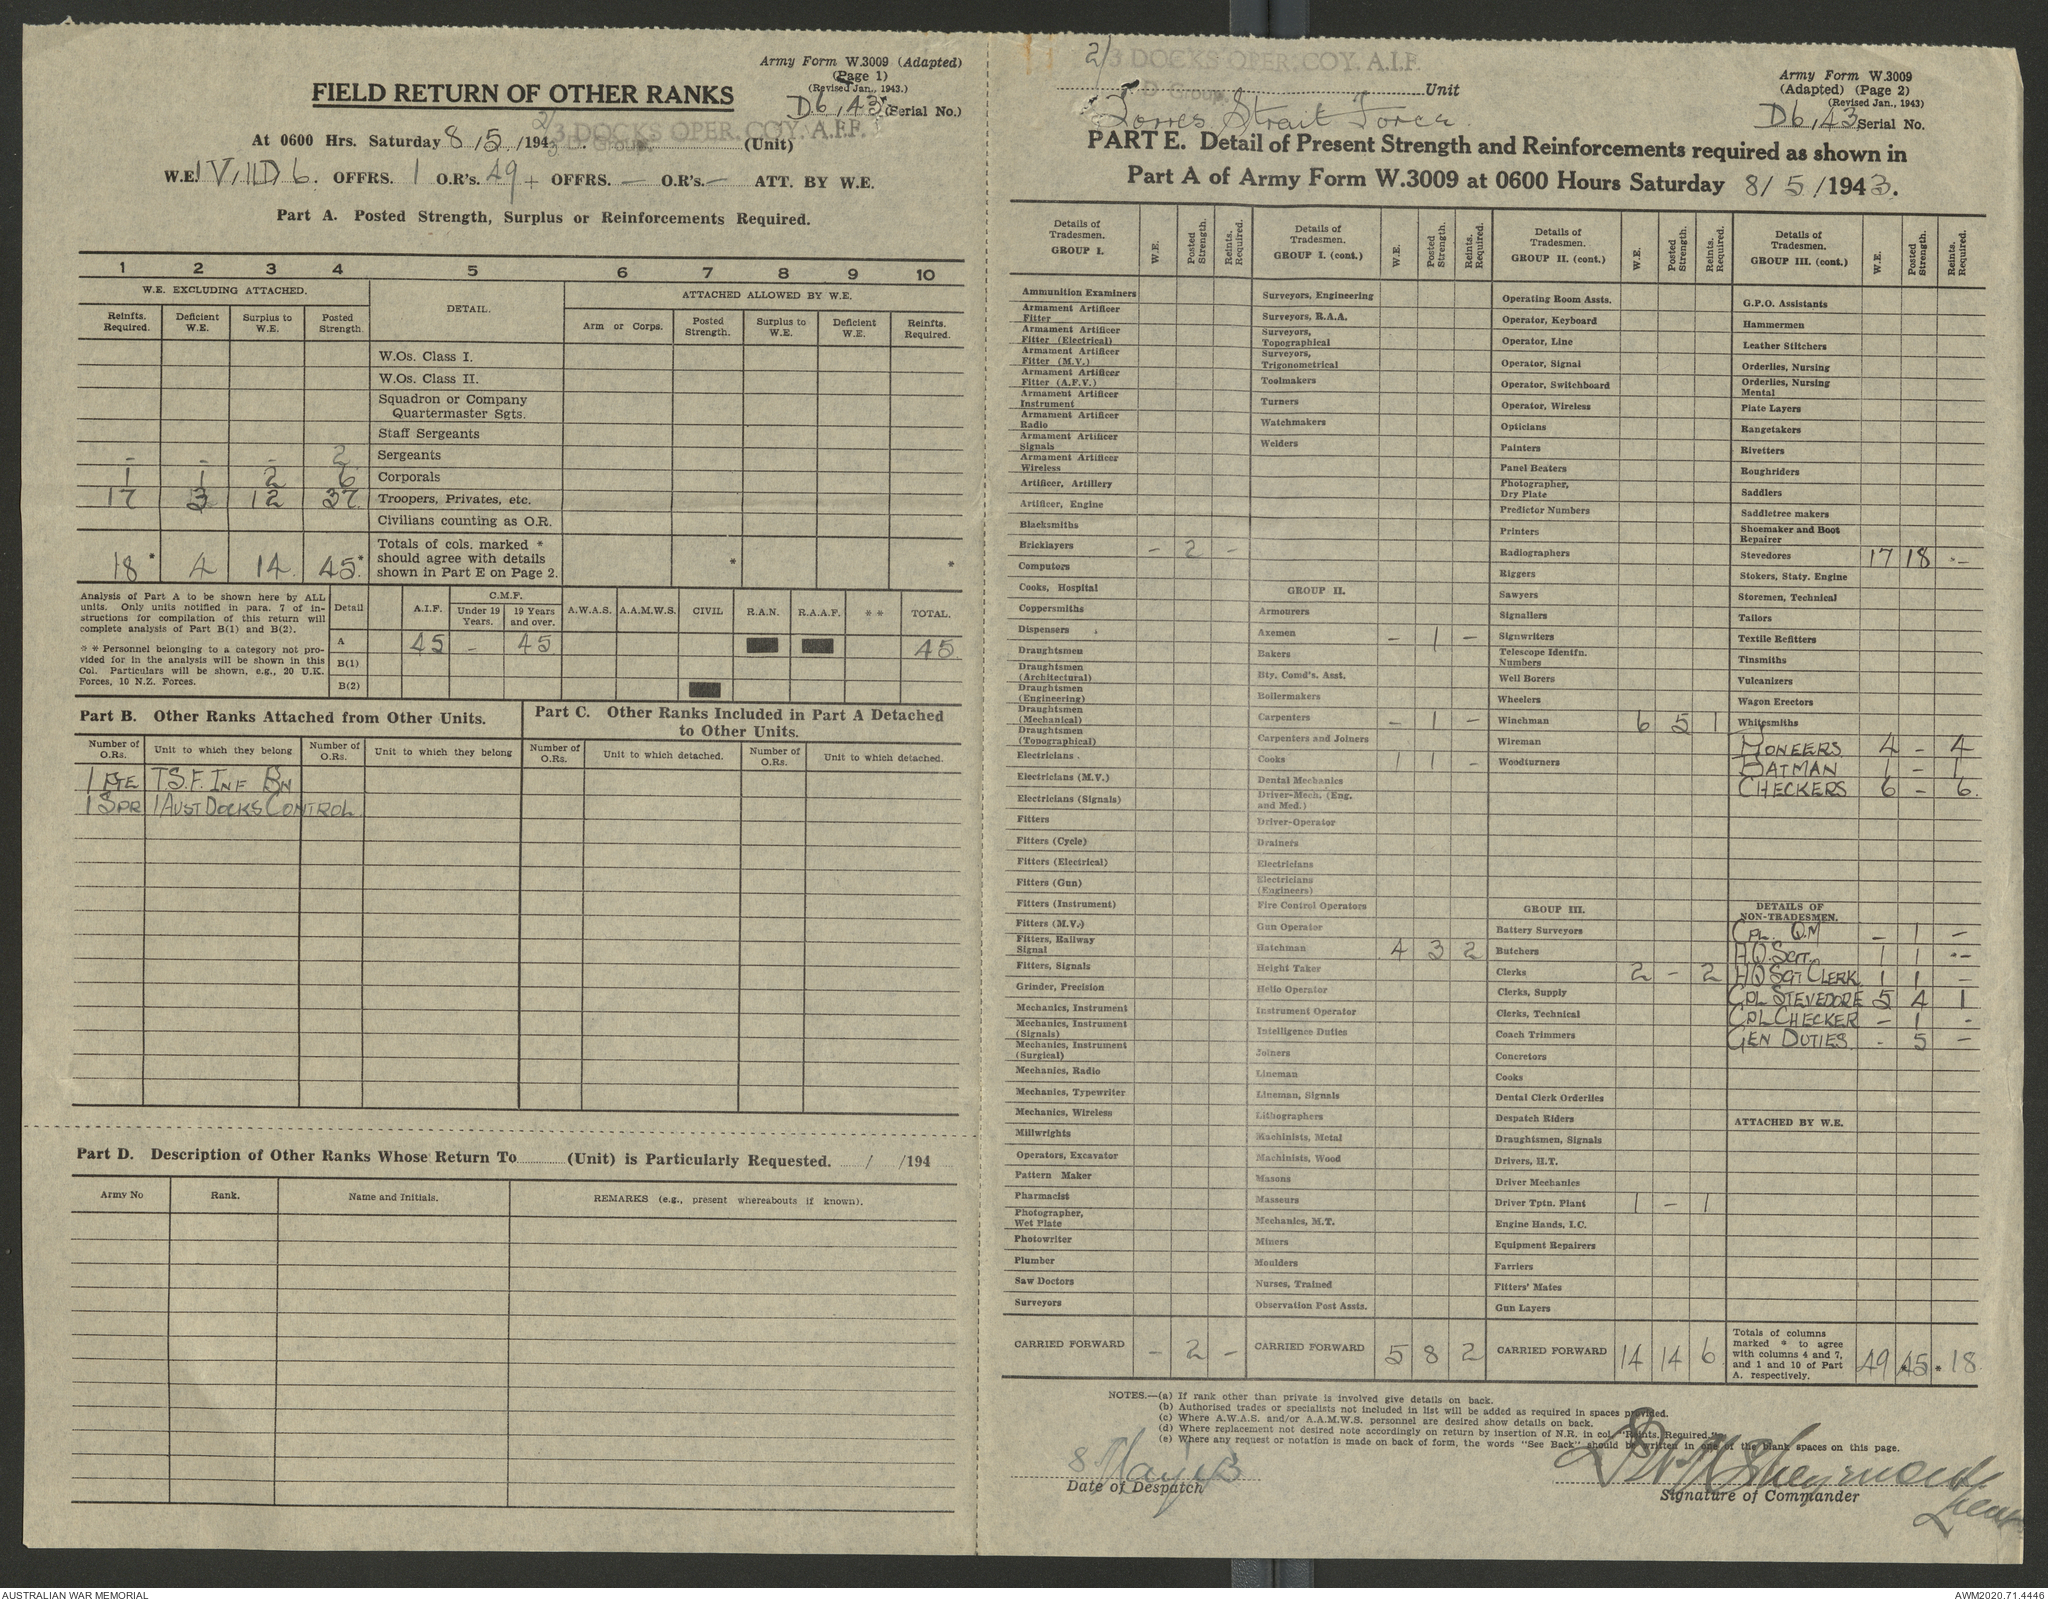 Army Form W.3009 (Adapted)
(Page 1)
(Revised Jan., 1943.)
FIELD RETURN OF OTHER RANKS
D6/43 (Serial No.)
2/3 DOCKS OPER. COY. A.I.F.
D. Group.
At 0600 Hrs. Saturday 8/5/1943 (Unit)
W.E. IV/11D/6. OFFRS. 1 O.R's. 49 + OFFRS. — O.R's. — ATT. BY W.E.
Part A. Posted Strength, Surplus or Reinforcements Required.
1 2 3 4 5 6 7 8 9 10
W.E. EXCLUDING ATTACHED. DETAIL. ATTACHED ALLOWED BY W.E.
Reinfts. Required. Deficient W.E. Surplus to W.E. Posted Strength. Arm or Corps. Posted Strength. Surplus to W.E. Deficient W.E. Reinfts. Required.
W.Os. Class I.
W.Os. Class II.
Squadron or Company
Quartermaster Sgts.
Staff Sergeants
- - - 2 Sergeants
1 1 2 6 Corporals
17 3 12 37 Troopers, Privates, etc.
Civilians counting as O.R.
18 * 4 14 45 * Totals of cols. marked * should agree with details shown in Part E on Page 2. * *
Analysis of Part A to be shown here by ALL units. Only units notified in para. 7 of instructions for compilation of this return will complete analysis of Part B(1) and B(2).
* * Personnel belonging to a category not provided for in the analysis will be shown in this Col. Particulars will be shown, e.g., 20 U.K. Forces, 10 N.Z. Forces.
Detail A.I.F. C.M.F. Under 19 Years. 19 Years and over. A.W.A.S. A.A.M.W.S. CIVIL R.A.N. R.A.A.F. * * TOTAL.
A 45 - 45 45
B(1)
B(2)
Part B. Other Ranks Attached from Other Units.
Part C. Other Ranks Included in Part A Detached to Other Units.
Number of O.Rs. Unit to which they belong Number of O.Rs. Unit to which they belong Number of O.Rs. Unit to which detached. Number of O.Rs. Unit to which detached.
1 PTE T.S.F. INF BN
1 SPR 1 AUST DOCKS CONTROL
Part D. Description of Other Ranks Whose Return To (Unit) is Particularly Requested. / /194
Army No Rank. Name and Initials. REMARKS (e.g., present whereabouts if known).
2/3 DOCKS OPER. COY. A.I.F.
D Group Unit
Torres Strait Force
Army Form W.3009
(Adapted) (Page 2)
(Revised Jan., 1943)
D6/43 Serial No.
PART E. Detail of Present Strength and Reinforcements required as shown in
Part A of Army Form W.3009 at 0600 Hours Saturday 8/5/1943.
Details of Tradesmen. GROUP I. W.E. Posted Strength. Reints. Required.
Ammunition Examiners
Armament Artificer Fitter
Armament Artificer Fitter (Electrical)
Armament Artificer Fitter (M.V.)
Armament Artificer Fitter (A.F.V.)
Armament Artificer Instrument
Armament Artificer Radio
Armament Artificer Signals
Armament Artificer Wireless
Artificer, Artillery
Artificer, Engine
Blacksmiths
Bricklayers - 2 -
Computors
Cooks, Hospital
Coppersmiths
Dispensers
Draughtsmen
Draughtsmen (Architectural)
Draughtsmen (Engineering)
Draughtsmen (Mechanical)
Draughtsmen (Topographical)
Electricians
Electricians (M.V.)
Electricians (Signals)
Fitters
Fitters (Cycle)
Fitters (Electrical)
Fitters (Gun)
Fitters (Instrument)
Fitters (M.V.)
Fitters, Railway Signal
Fitters, Signals
Grinder, Precision
Mechanics, Instrument
Mechanics, Instrument (Signals)
Mechanics, Instrument (Surgical)
Mechanics, Radio
Mechanics, Typewriter
Mechanics, Wireless
Millwrights
Operators, Excavator
Pattern Maker
Pharmacist
Photographer, Wet Plate
Photowriter
Plumber
Saw Doctors
Surveyors
CARRIED FORWARD - 2 -
Details of Tradesmen. GROUP I. (cont.) W.E. Posted Strength. Reints. Required.
Surveyors, Engineering
Surveyors, R.A.A.
Surveyors, Topographical
Surveyors, Trigonometrical
Toolmakers
Turners
Watchmakers
Welders
GROUP II.
Armourers
Axemen - 1 -
Bakers
Bty. Comd's. Asst.
Boilermakers
Carpenters - 1 -
Carpenters and Joiners
Cooks 1 1 -
Dental Mechanics
Driver-Mech. (Eng. and Med.)
Driver-Operator
Drainers
Electricians
Electricians (Engineers)
Fire Control Operators
Gun Operator
Hatchman 4 3 2
Height Taker
Helio Operator
Instrument Operator
Intelligence Duties
Joiners
Lineman
Lineman, Signals
Lithographers
Machinists, Metal
Machinists, Wood
Masons
Masseurs
Mechanics, M.T.
Miners
Moulders
Nurses, Trained
Observation Post Assts.
CARRIED FORWARD 5 8 2
Details of Tradesmen. GROUP II. (cont.) W.E. Posted Strength. Reints. Required.
Operating Room Assts.
Operator, Keyboard
Operator, Line
Operator, Signal
Operator, Switchboard
Operator, Wireless
Opticians
Painters
Panel Beaters
Photographer, Dry Plate
Predictor Numbers
Printers
Radiographers
Riggers
Sawyers
Signallers
Signwriters
Telescope Identfn. Numbers
Well Borers
Wheelers
Winchman 6 5 1
Wireman
Woodturners
GROUP III.
Battery Surveyors
Butchers
Clerks 2 - 2
Clerks, Supply
Clerks, Technical
Coach Trimmers
Concretors
Cooks
Dental Clerk Orderlies
Despatch Riders
Draughtsmen, Signals
Drivers, H.T.
Driver Mechanics
Driver Tptn. Plant 1 - 1
Engine Hands, I.C.
Equipment Repairers
Farriers
Fitters' Mates
Gun Layers
CARRIED FORWARD 14 14 6
Details of Tradesmen. GROUP III. (cont.) W.E. Posted Strength. Reints. Required.
G.P.O. Assistants
Hammermen
Leather Stitchers
Orderlies, Nursing
Orderlies, Nursing Mental
Plate Layers
Rangetakers
Rivetters
Roughriders
Saddlers
Saddletree makers
Shoemaker and Boot Repairer
Stevedores 17 18 -
Stokers, Staty. Engine
Storemen, Technical
Tailors
Textile Refitters
Tinsmiths
Vulcanizers
Wagon Erectors
Whitesmiths
PIONEERS 4 - 4
BATMAN 1 - 1
CHECKERS 6 - 6
DETAILS OF NON-TRADESMEN.
CPL. Q.M - 1 -
H.Q. SGT. 1 1 -
HQ SGT CLERK 1 1 -
CPL STEVEDORE 5 4 1
CPL CHECKER - 1 -
GEN DUTIES - 5 -
ATTACHED BY W.E.
Totals of columns marked * to agree with columns 4 and 7, and 1 and 10 of Part A. respectively. 49 * 45 * 18
NOTES.—(a) If rank other than private is involved give details on back.
(b) Authorised trades or specialists not included in list will be added as required in spaces provided.
(c) Where A.W.A.S. and/or A.A.M.W.S. personnel are desired show details on back.
(d) Where replacement not desired note accordingly on return by insertion of N.R. in col. "Reints. Required."
(e) Where any request or notation is made on back of form, the words "See Back" should be written in one of the blank spaces on this page.
8 May 43
Date of Despatch
Lieut
Signature of Commander
AUSTRALIAN WAR MEMORIAL
AWM2020.71.4446